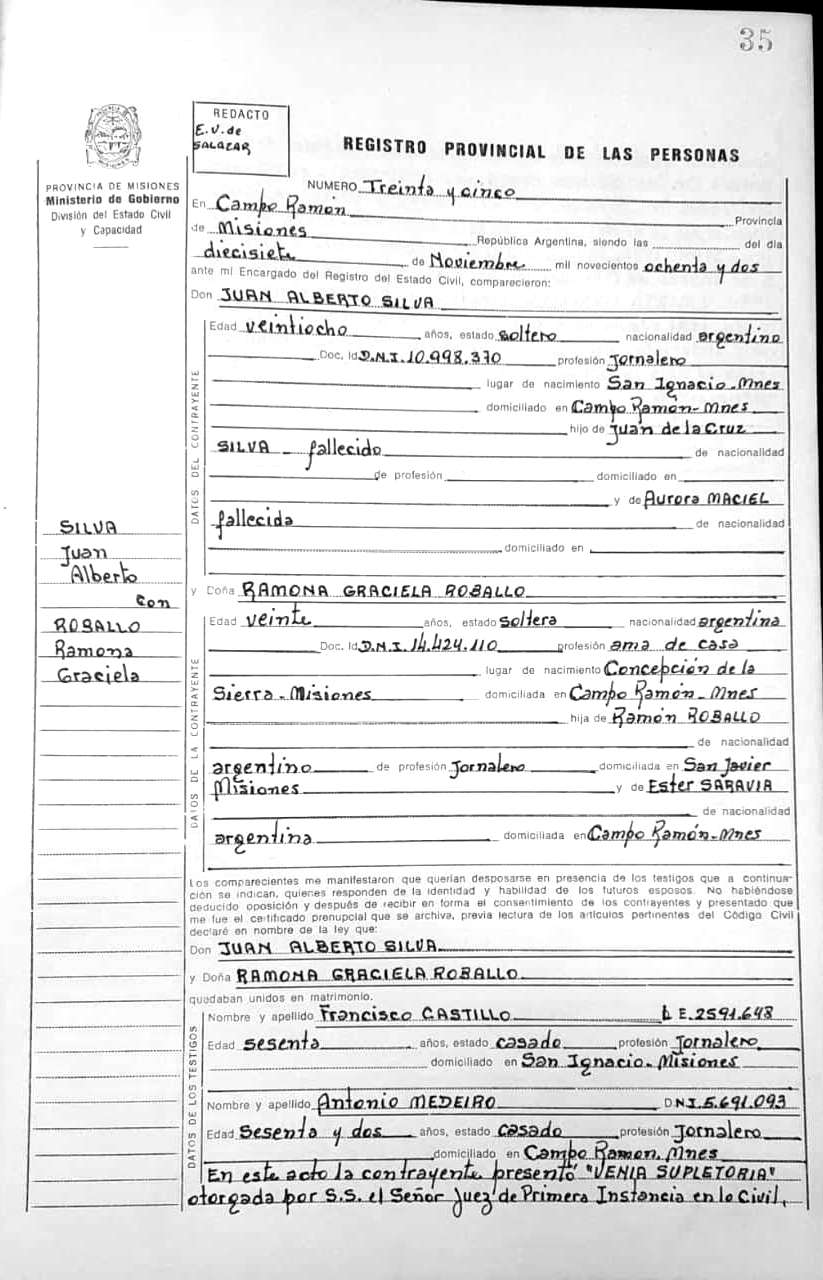 35
REDACTO
E.V. de
SALAZAR
REGISTRO PROVINCIAL DE LAS PERSONAS
PROVINCIA DE MISIONES
Ministerio de Gobierno
División del Estado Civil
y Capacidad
NUMERO Treinta y cinco
En Campo Ramón Provincia
de Misiones República Argentina, siendo las del día
diecisiete de Noviembre mil novecientos ochenta y dos
ante mi Encargado del Registro del Estado Civil, comparecieron:
Don JUAN ALBERTO SILVA
DATOS DEL CONTRAYENTE
Edad veintiocho años, estado soltero nacionalidad argentino
Doc. Id D.N.I. 10.998.370 profesión Jornalero
lugar de nacimiento San Ignacio-Mnes
domiciliado en Campo Ramón-Mnes
hijo de Juan de la Cruz
SILVA - fallecido de nacionalidad
de profesión domiciliado en
y de Aurora MACIEL
fallecida de nacionalidad
domiciliado en
SILVA
Juan
Alberto
con
ROBALLO
Ramona
Graciela
y Doña RAMONA GRACIELA ROBALLO
DATOS DE LA CONTRAYENTE
Edad veinte años, estado soltera nacionalidad argentina
Doc. Id D.N.I. 14.424.110 profesión ama de casa
lugar de nacimiento Concepción de la
Sierra-Misiones domiciliada en Campo Ramón-Mnes
hija de Ramón ROBALLO
de nacionalidad
argentino de profesión Jornalero domiciliada en San Javier
Misiones y de Ester SARAVIA
de nacionalidad
argentina domiciliada en Campo Ramón-Mnes
Los comparecientes me manifestaron que querían desposarse en presencia de los testigos que a continua-
ción se indican, quienes responden de la identidad y habilidad de los futuros esposos. No habiéndose
deducido oposición y después de recibir en forma el consentimiento de los contrayentes y presentado que
me fue el certificado prenupcial que se archiva, previa lectura de los artículos pertinentes del Código Civil
declaré en nombre de la ley que:
Don JUAN ALBERTO SILVA
y Doña RAMONA GRACIELA ROBALLO
quedaban unidos en matrimonio.
DATOS DE LOS TESTIGOS
Nombre y apellido Francisco CASTILLO L E. 2591.648
Edad sesenta años, estado casado profesión Jornalero
domiciliado en San Ignacio-Misiones
Nombre y apellido Antonio MEDEIRO D.N.I. 5.691.093
Edad Sesenta y dos años, estado casado profesión Jornalero
domiciliado en Campo Ramon. Mnes
En este acto la contrayente presentó "VENIA SUPLETORIA"
otorgada por S.S. el Señor Juez de Primera Instancia en lo Civil,